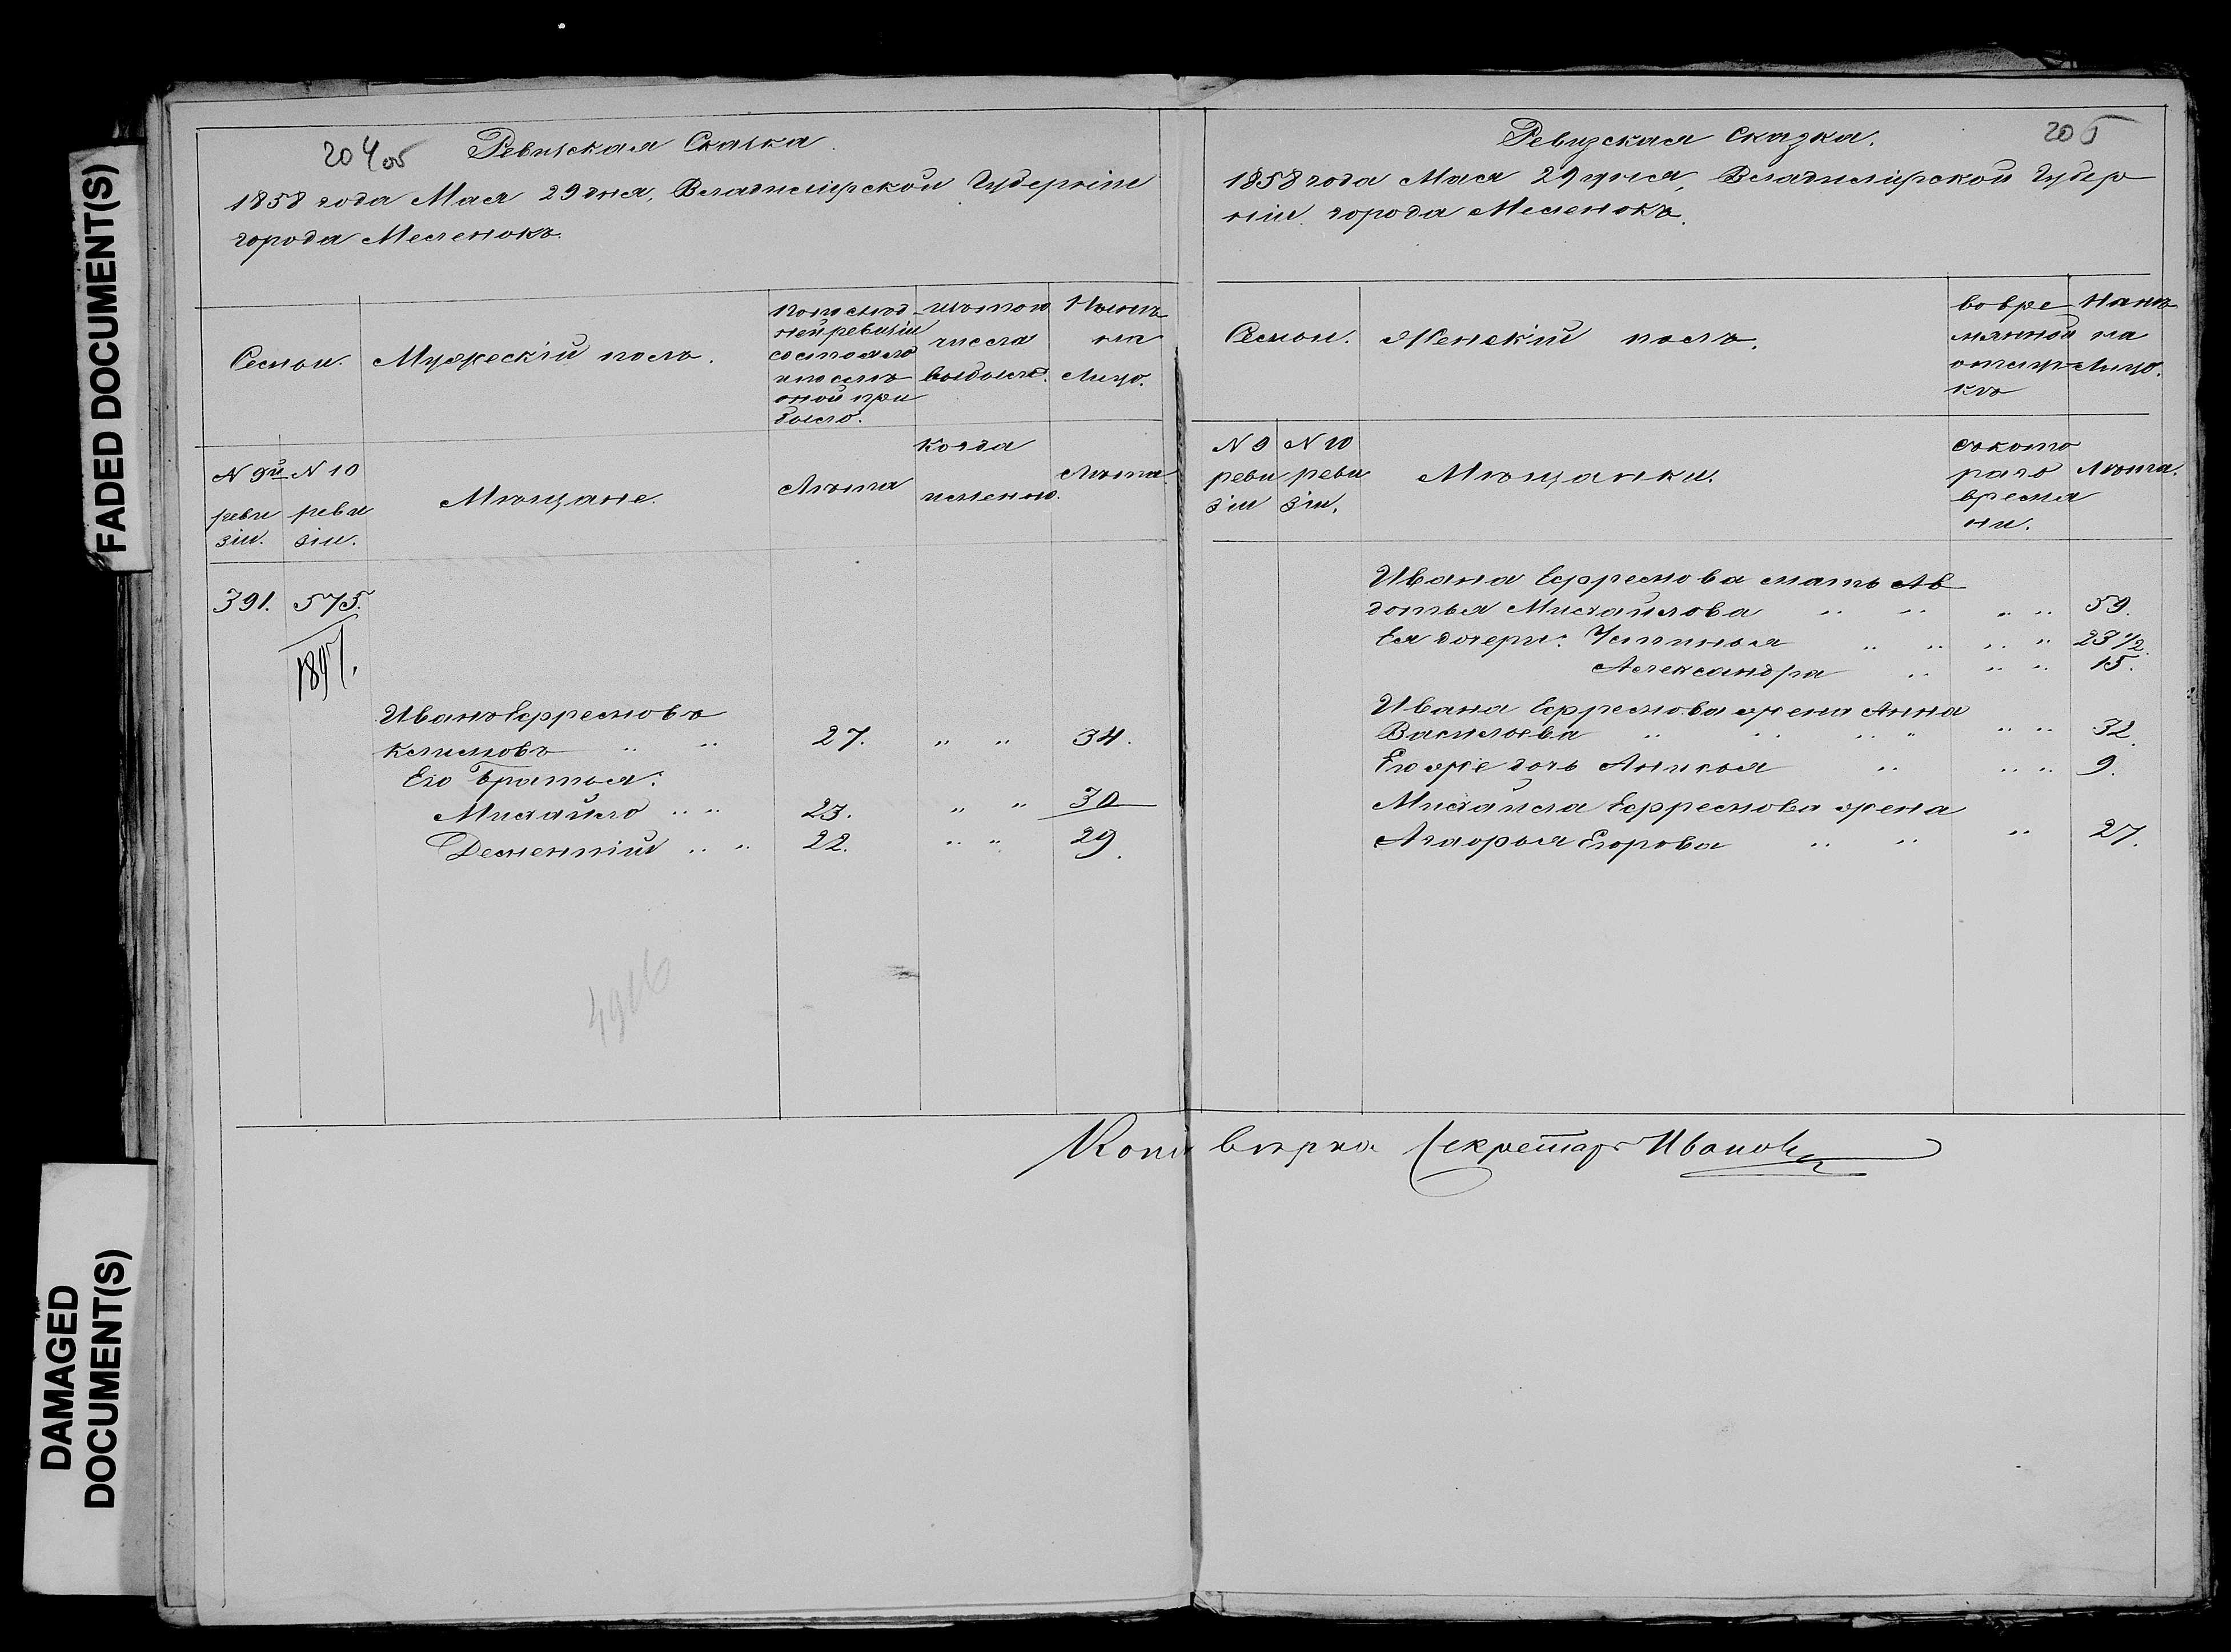 FADED DOCUMENT(S)
DAMAGED
DOCUMENT(S)
204 об
Ревизская Сказка.
1858 года Мая 29 дня, Владимірской Губерніи
города Меленокъ.
Семьи.
Мужескій полъ.
По послѣд
ней ревизіи
состояло
и послѣ
оной при
было.
изъ того
числа
выбыло.
Нынѣ
на
лицо.
N 9й
реви
зіи.
N 10
реви
зіи.
Мѣщане.
Лѣта
когда
именно.
Лѣта
391. 575.
1897.
Иванъ Ефремовъ
Климовъ " " 27. " " 34.
Его братья:
Михайло " " 23. " " 30
Дементій " " 22. " " 29.
205
Ревизская Сказка.
1858 года Мая 29 дня, Владимірской Губер
ніи города Меленокъ.
Семьи.
Женскій полъ.
во вре
мянной
отлуч
кѣ
Нынѣ
на
лицо.
N 9
реви
зіи
N 10
реви
зіи.
Мѣщанки.
съ кото
раго
време
ни.
Лѣта.
Ивана Ефремова мать Ав
дотья Михайлова " " " " 59.
Ея дочери: Устинья " " " " 23 1/2.
Александра " " " 15.
Ивана Ефремова жена Анна
Васильева " " " " " " 32.
Его же дочь Анисья " " " 9.
Михайла Ефремова жена
Агафья Егорова " " " 27.
Копі вѣрна Секретарь Ивановъ